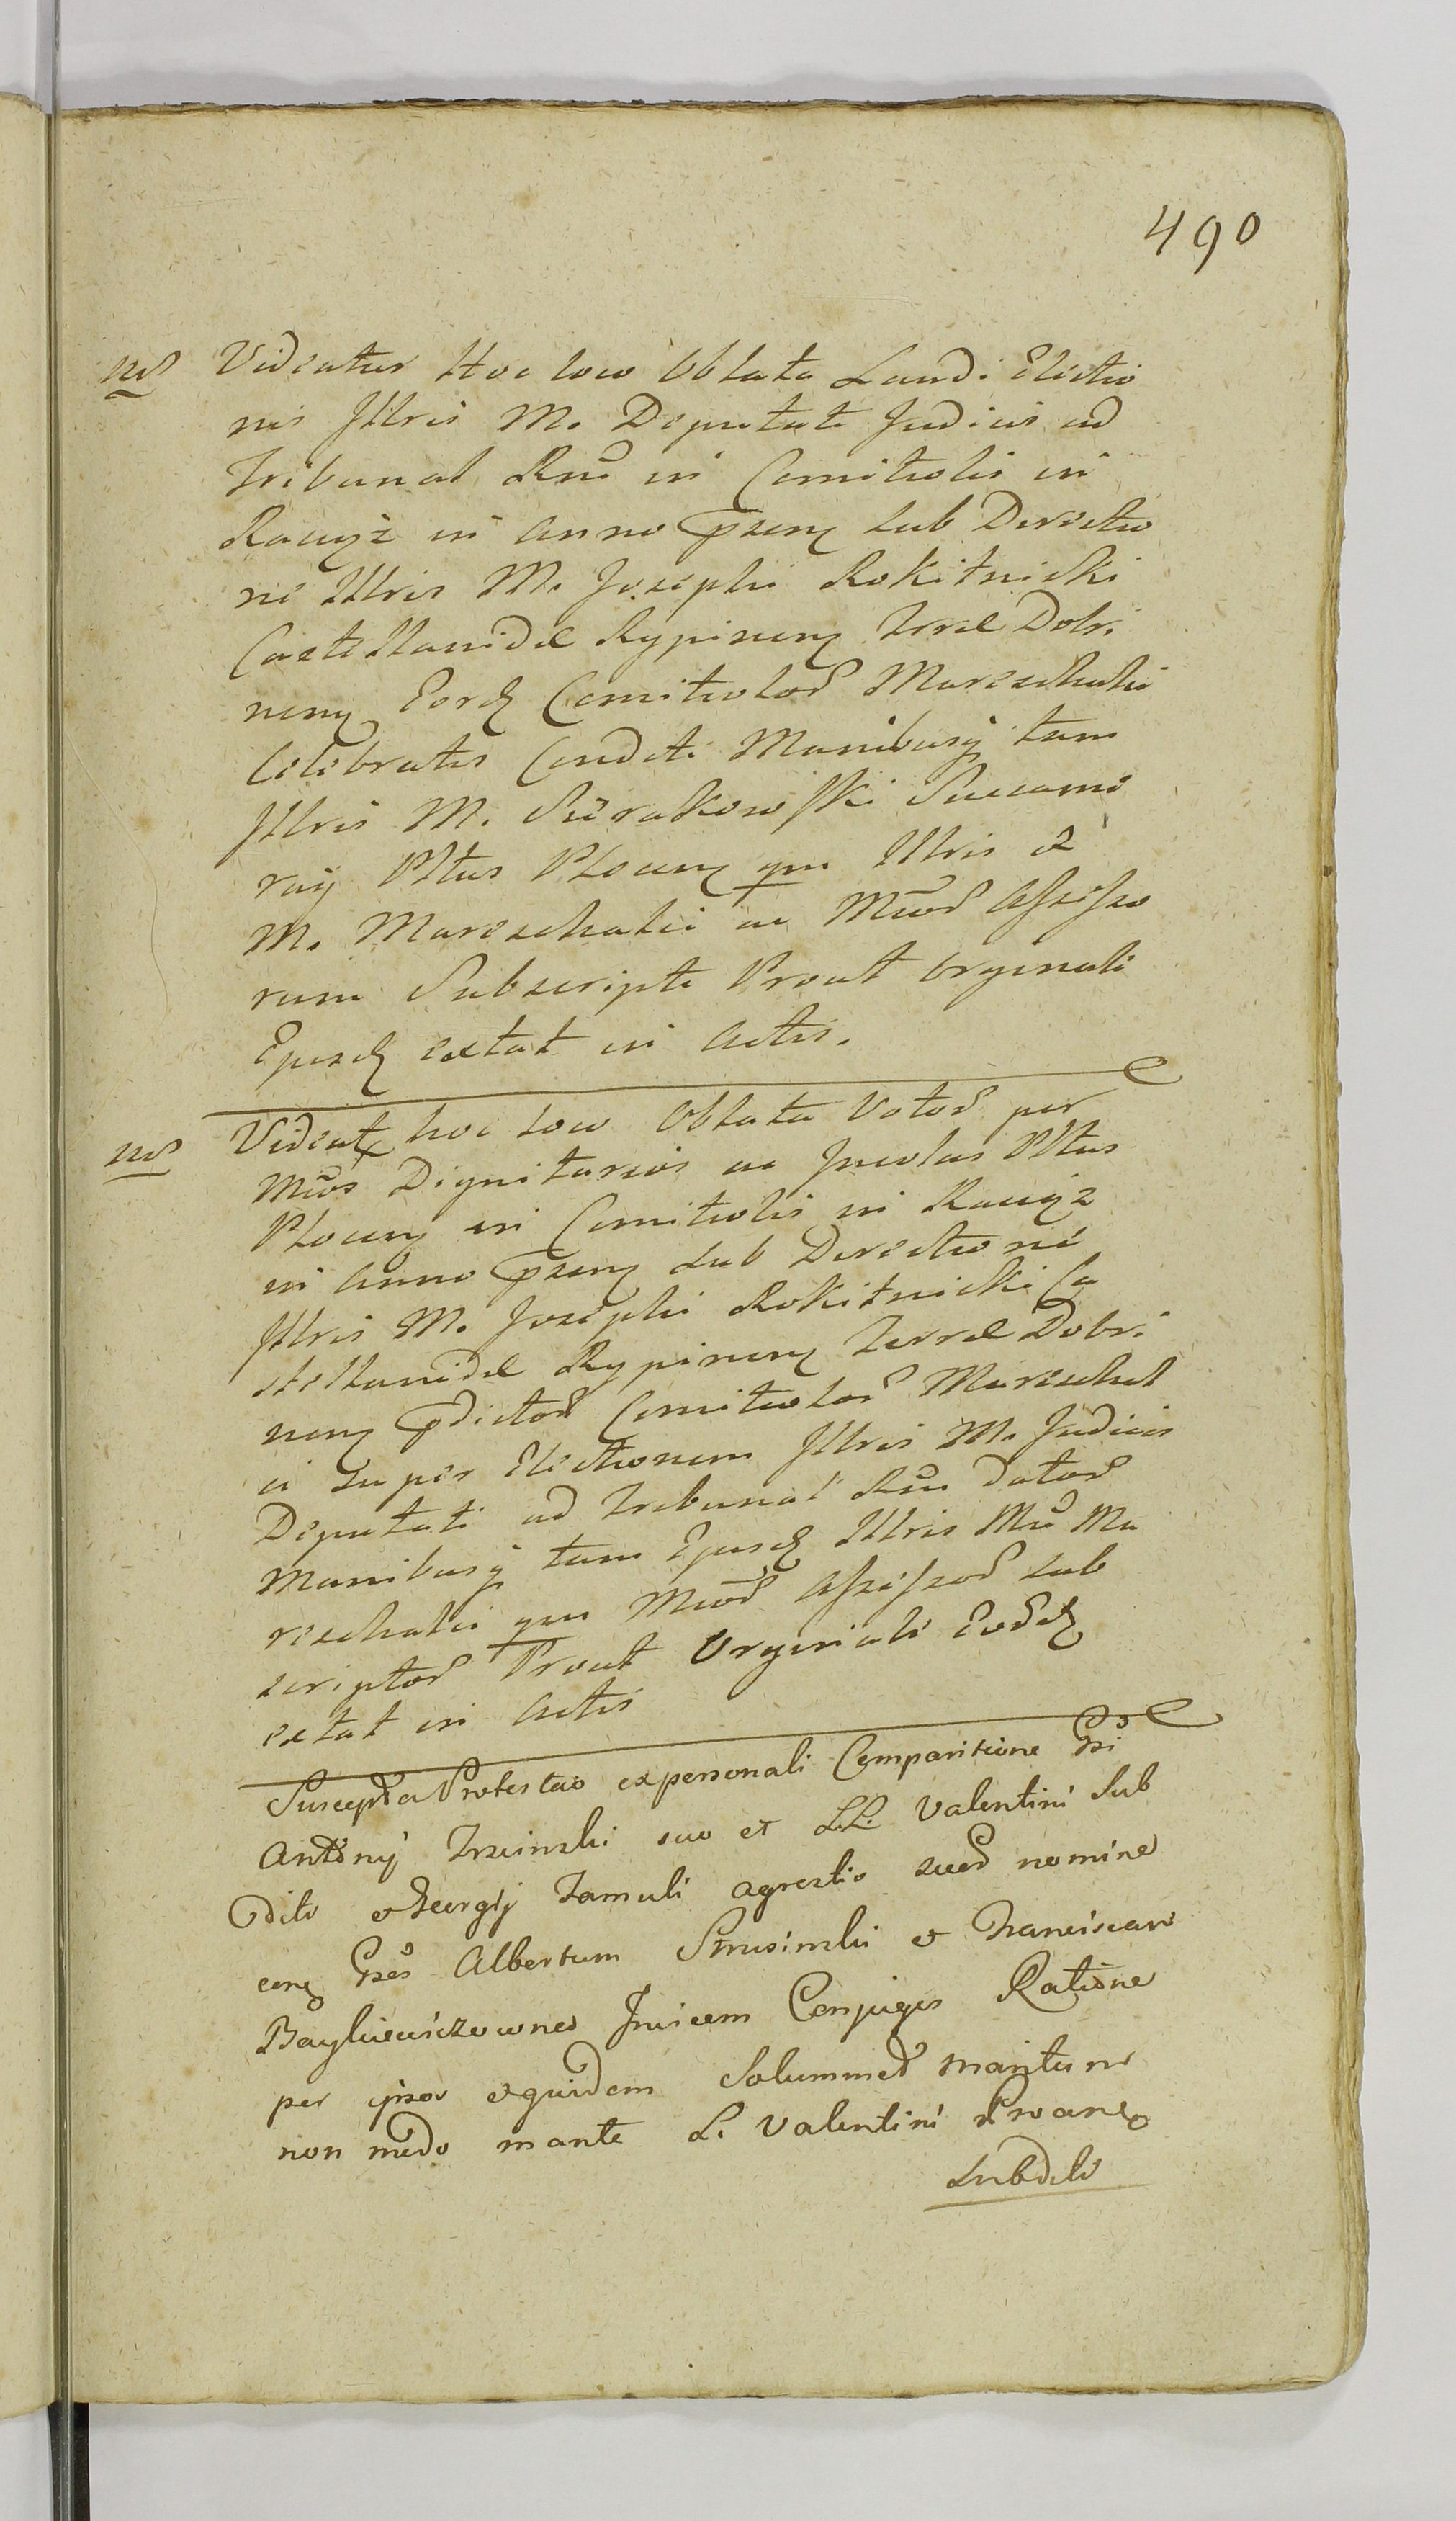 490
nd Videatur Hoc loco Oblata Laudi Electio
nis Illris M. Deputati Judicis ad
Tribunal Rni in Comitiolis in
Raciąż in Anno praesen sub Directio
ne Illris M. Josephi Rokitnicki
Castellanidae Rypinen Terrae Dobri
nen Eord Comitiolor Mareschalci
Celebratis Conditi Manibusq tam
Illris M. Sierakowski Succame
rarij Pltus Plocen qm Illris et
M. Mareschalci ac Mcor Assesso
rum Subscripti Prout Orginali
Ejusd extat in Actis.
nd Videat hoc loco Oblata Votor per
Mcos Dignitarios ac Incolas Pltus
Plocen in Comitiolis in Raciąż
in Anno praesen sub Directione
Illris M. Josephi Rokitnicki Ca
stellanidae Rypinen Terrae Dobri
nen pdictor Comitiolor Mareschal
ci super Electionem Illris M. Judicis
Deputati ad Tribunal Rni dator
Manibusq tam Ejusd Illris Mci Ma
reschalci qm Mcor Assessor sub
scriptor Prout Orginali Eord
extat in Actis
Suscepta Protestao ex personali Comparitione Gsi
Antonij Trzcinski suo et L.L. Valentini Sub
dilo et Georgij Famuli agrestio suor nomine
con Gsos Albertum Strusinski et Franciscam
Baykiewiczowna Invicem Conjuges Ratione
per ipsos equidem Solummod maritum
non modo mante L. Valentini Proane
Subdilo